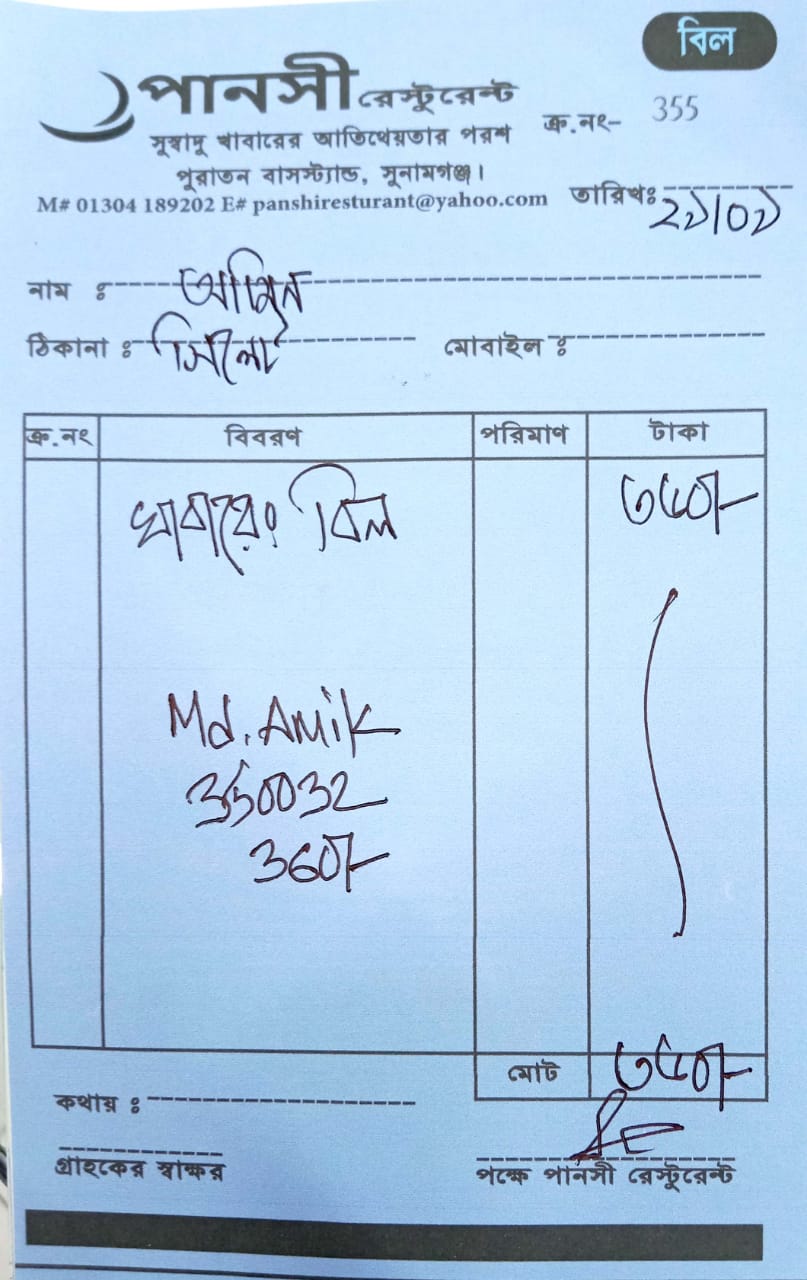 বিল
পানসী রেস্টুরেন্ট
সুস্বাদু খাবারের আতিথেয়তার পরশ
ক্র.নং- 355
পুরাতন বাসস্ট্যান্ড, সুনামগঞ্জ।
M# 01304 189202 E# panshiresturant@yahoo.com
তারিখঃ ২১/০১
নাম ঃ
ঠিকানা ঃ সিলেট মোবাইল ঃ
ক্র.নং বিবরণ পরিমাণ টাকা
খাবারের বিল ৩৬০/-
Md. AMiK
350032
360/-
মোট ৩৬০/-
কথায় ঃ
গ্রাহকের স্বাক্ষর পক্ষে পানসী রেস্টুরেন্ট